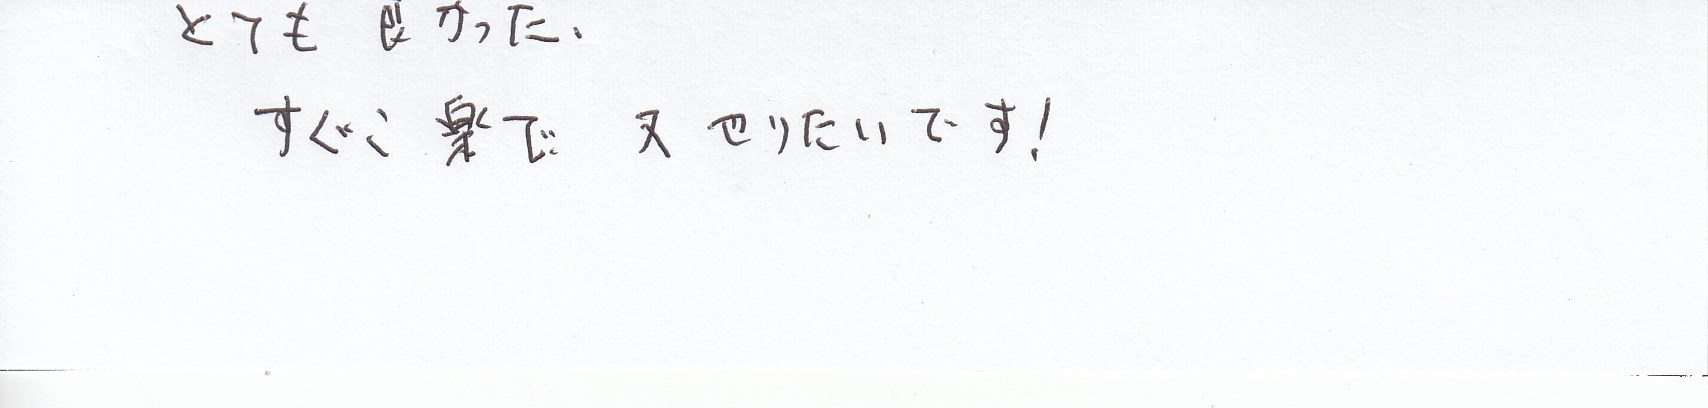 とても 良かった、
すぐに 楽で 又 やりたいです!